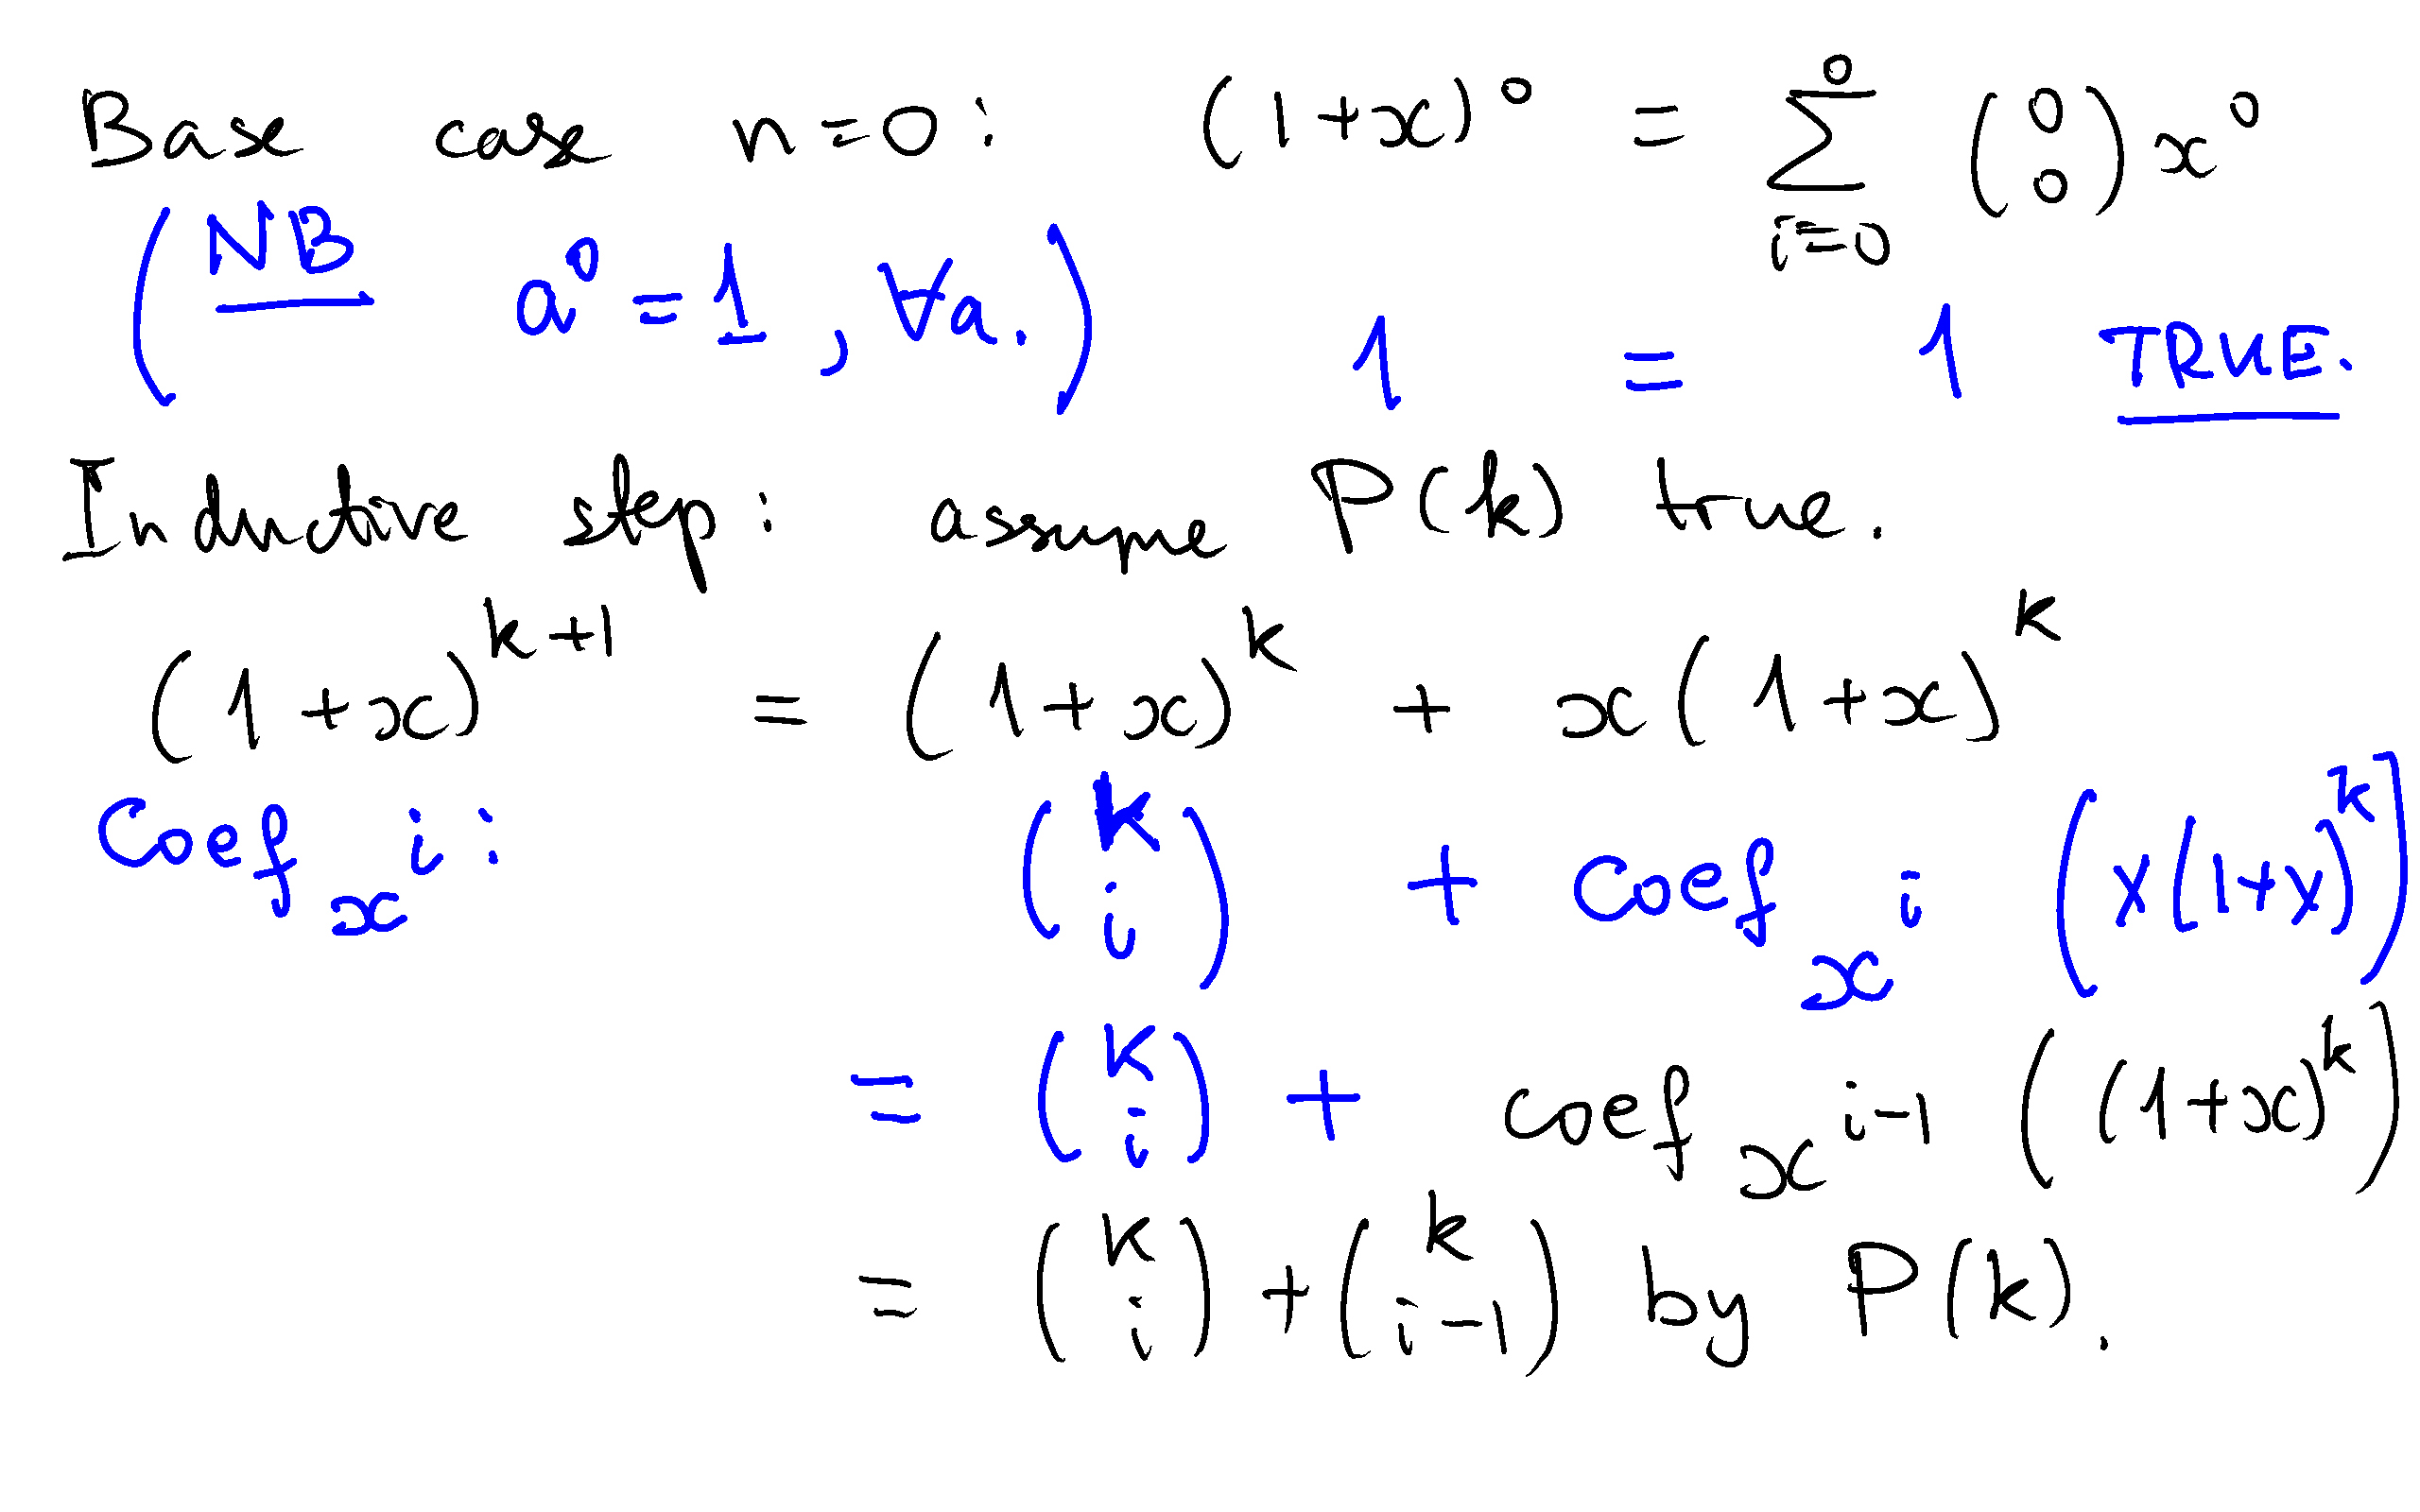 Base case n=0: (1+x)⁰ = ∑_{i=0}^{0} (0 0) x⁰
(NB a⁰ = 1, ∀a.) 1 = 1 TRUE.
Inductive step: assume P(k) true.
(1+x)^{k+1} = (1+x)^k + x(1+x)^k
Coef_{x^i}: (k i) + coef_{x^i} (x(1+x)^k)
= (k i) + coef_{x^{i-1}} ((1+x)^k)
= (k i) + (k i-1) by P(k).